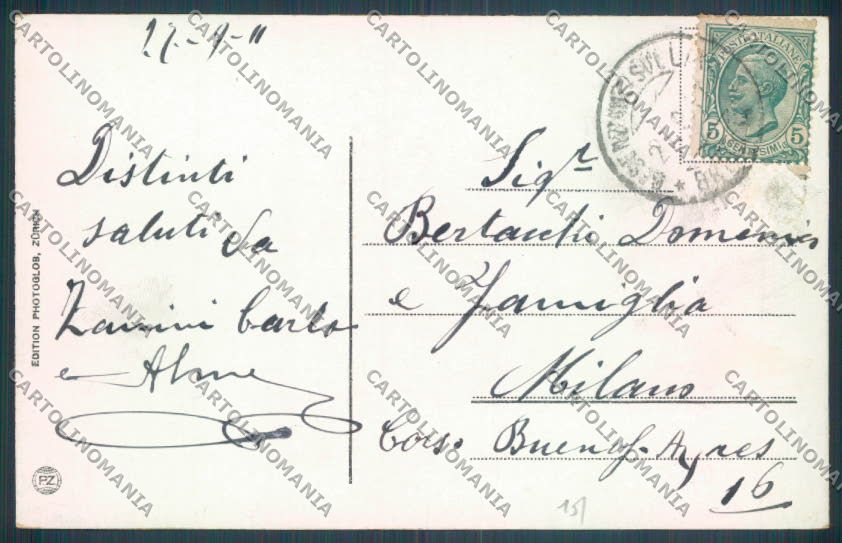 27-9-11
Distinti
saluti da
Zanini Carlo
e
EDITION PHOTOGLOB, ZÜRICH
PZ
POSTE ITALIANE
5 5
CENTESIMI
Sigr
Bertacchi Domenico
e Famiglia
Milano
Corso Buenos-Ayres
16
15/
CARTOLINOMANIA